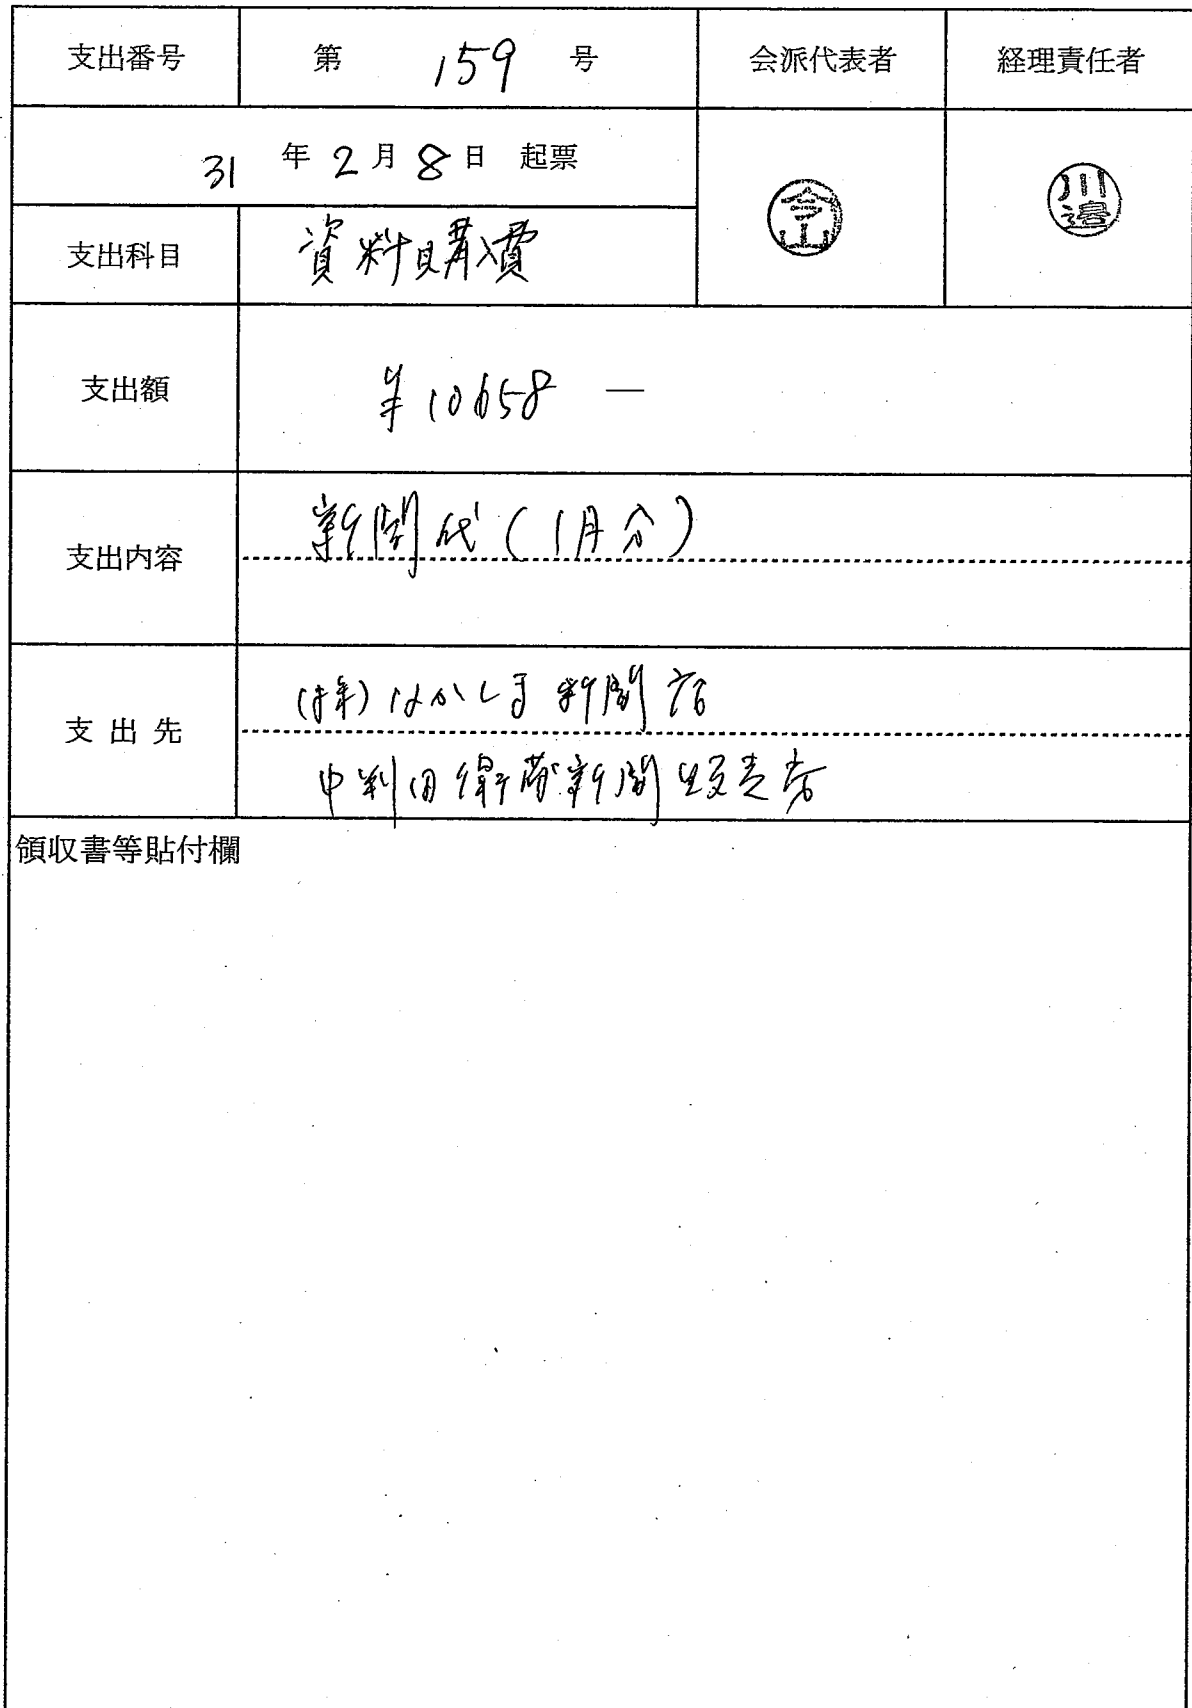 支出番号 第 159 号 会派代表者 経理責任者
31 年 2 月 8 日 起票
今山 川邉
支出科目 資料購入費
支出額 ¥10658 ―
支出内容 新聞代(1月分)
支出先 (株)はかしま新聞店
中判田 新聞販売店
領収書等貼付欄